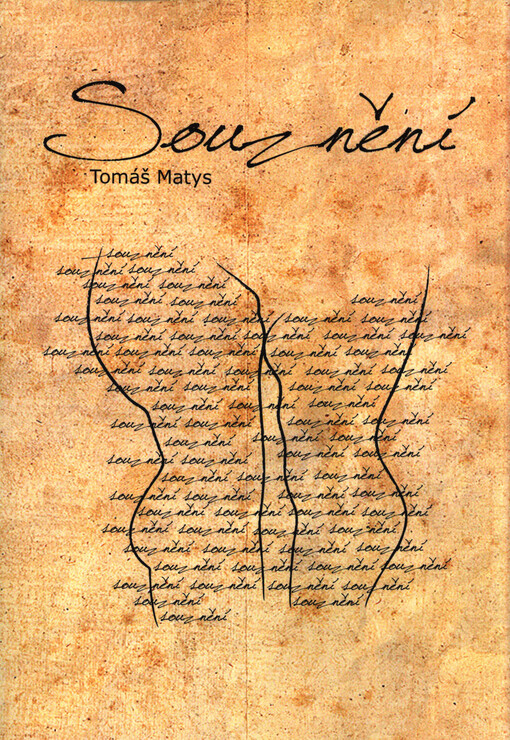 Souznění
Tomáš Matys
souznění
souznění souznění
souznění souznění
souznění souznění souznění
souznění souznění souznění souznění souznění
souznění souznění souznění souznění souznění
souznění souznění souznění souznění souznění
souznění souznění souznění souznění souznění
souznění souznění souznění souznění
souznění souznění souznění
souznění souznění souznění souznění
souznění souznění souznění
souznění souznění souznění souznění
souznění souznění souznění
souznění souznění souznění souznění
souznění souznění souznění souznění
souznění souznění souznění souznění
souznění souznění souznění souznění
souznění souznění souznění souznění
souznění souznění souznění souznění
souznění souznění
souznění